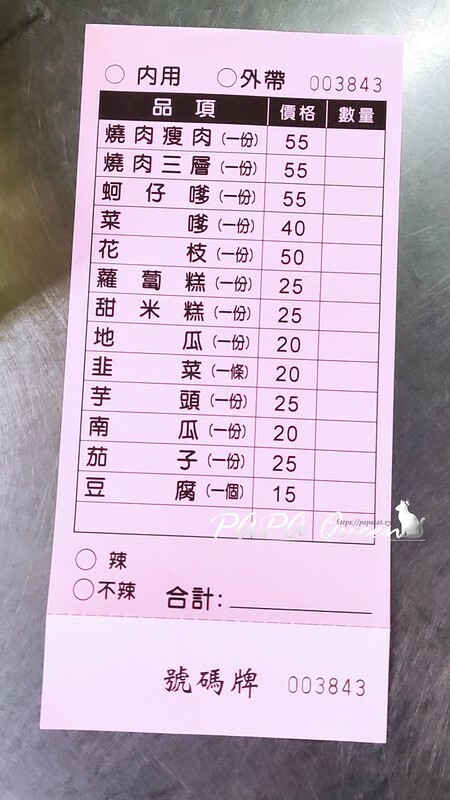 ○ 內用 ○外帶 003843
品項 價格 數量
燒肉瘦肉(一份) 55
燒肉三層(一份) 55
蚵仔嗲(一份) 55
菜嗲(一份) 40
花枝(一份) 50
蘿蔔糕(一份) 25
甜米糕(一份) 25
地瓜(一份) 20
韭菜(一條) 20
芋頭(一份) 25
南瓜(一份) 20
茄子(一份) 25
豆腐(一個) 15
https://papacat.xy
PAPA Queen
○ 辣
○不辣 合計:
號碼牌 003843